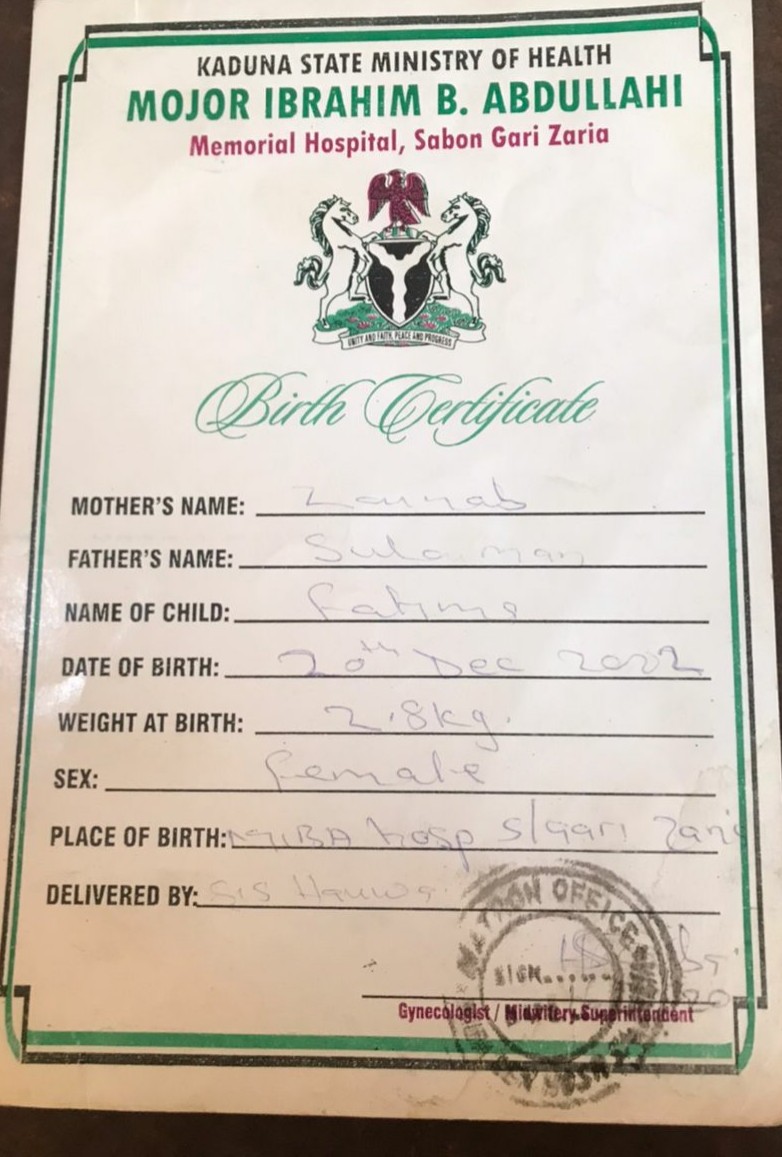 KADUNA STATE MINISTRY OF HEALTH
MOJOR IBRAHIM B. ABDULLAHI
Memorial Hospital, Sabon Gari Zaria
UNITY AND FAITH, PEACE AND PROGRESS
Birth Certificate
MOTHER'S NAME: Zainab
FATHER'S NAME: Sulaiman
NAME OF CHILD: Fatima
DATE OF BIRTH: 20th Dec 2022
WEIGHT AT BIRTH: 2.8kg.
SEX: female
PLACE OF BIRTH: MIBA hosp s/gari Zaria
DELIVERED BY: Sis Hauwa
MATRON OFFICE
SIGN......
Gynecologist / Midwifery Superintendent